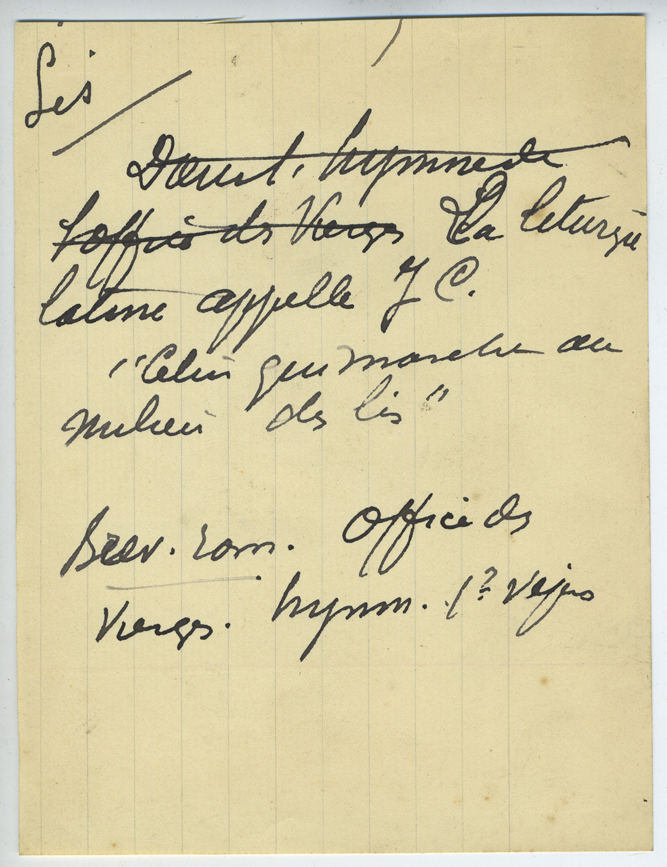 Lis
Dans l'hymne de
l'office des Vierges La liturgie
latine appelle J C.
"Celui qui marche au
milieu des lis"
Brev. rom. Office des
Vierges. hymn. 1? Vêpres